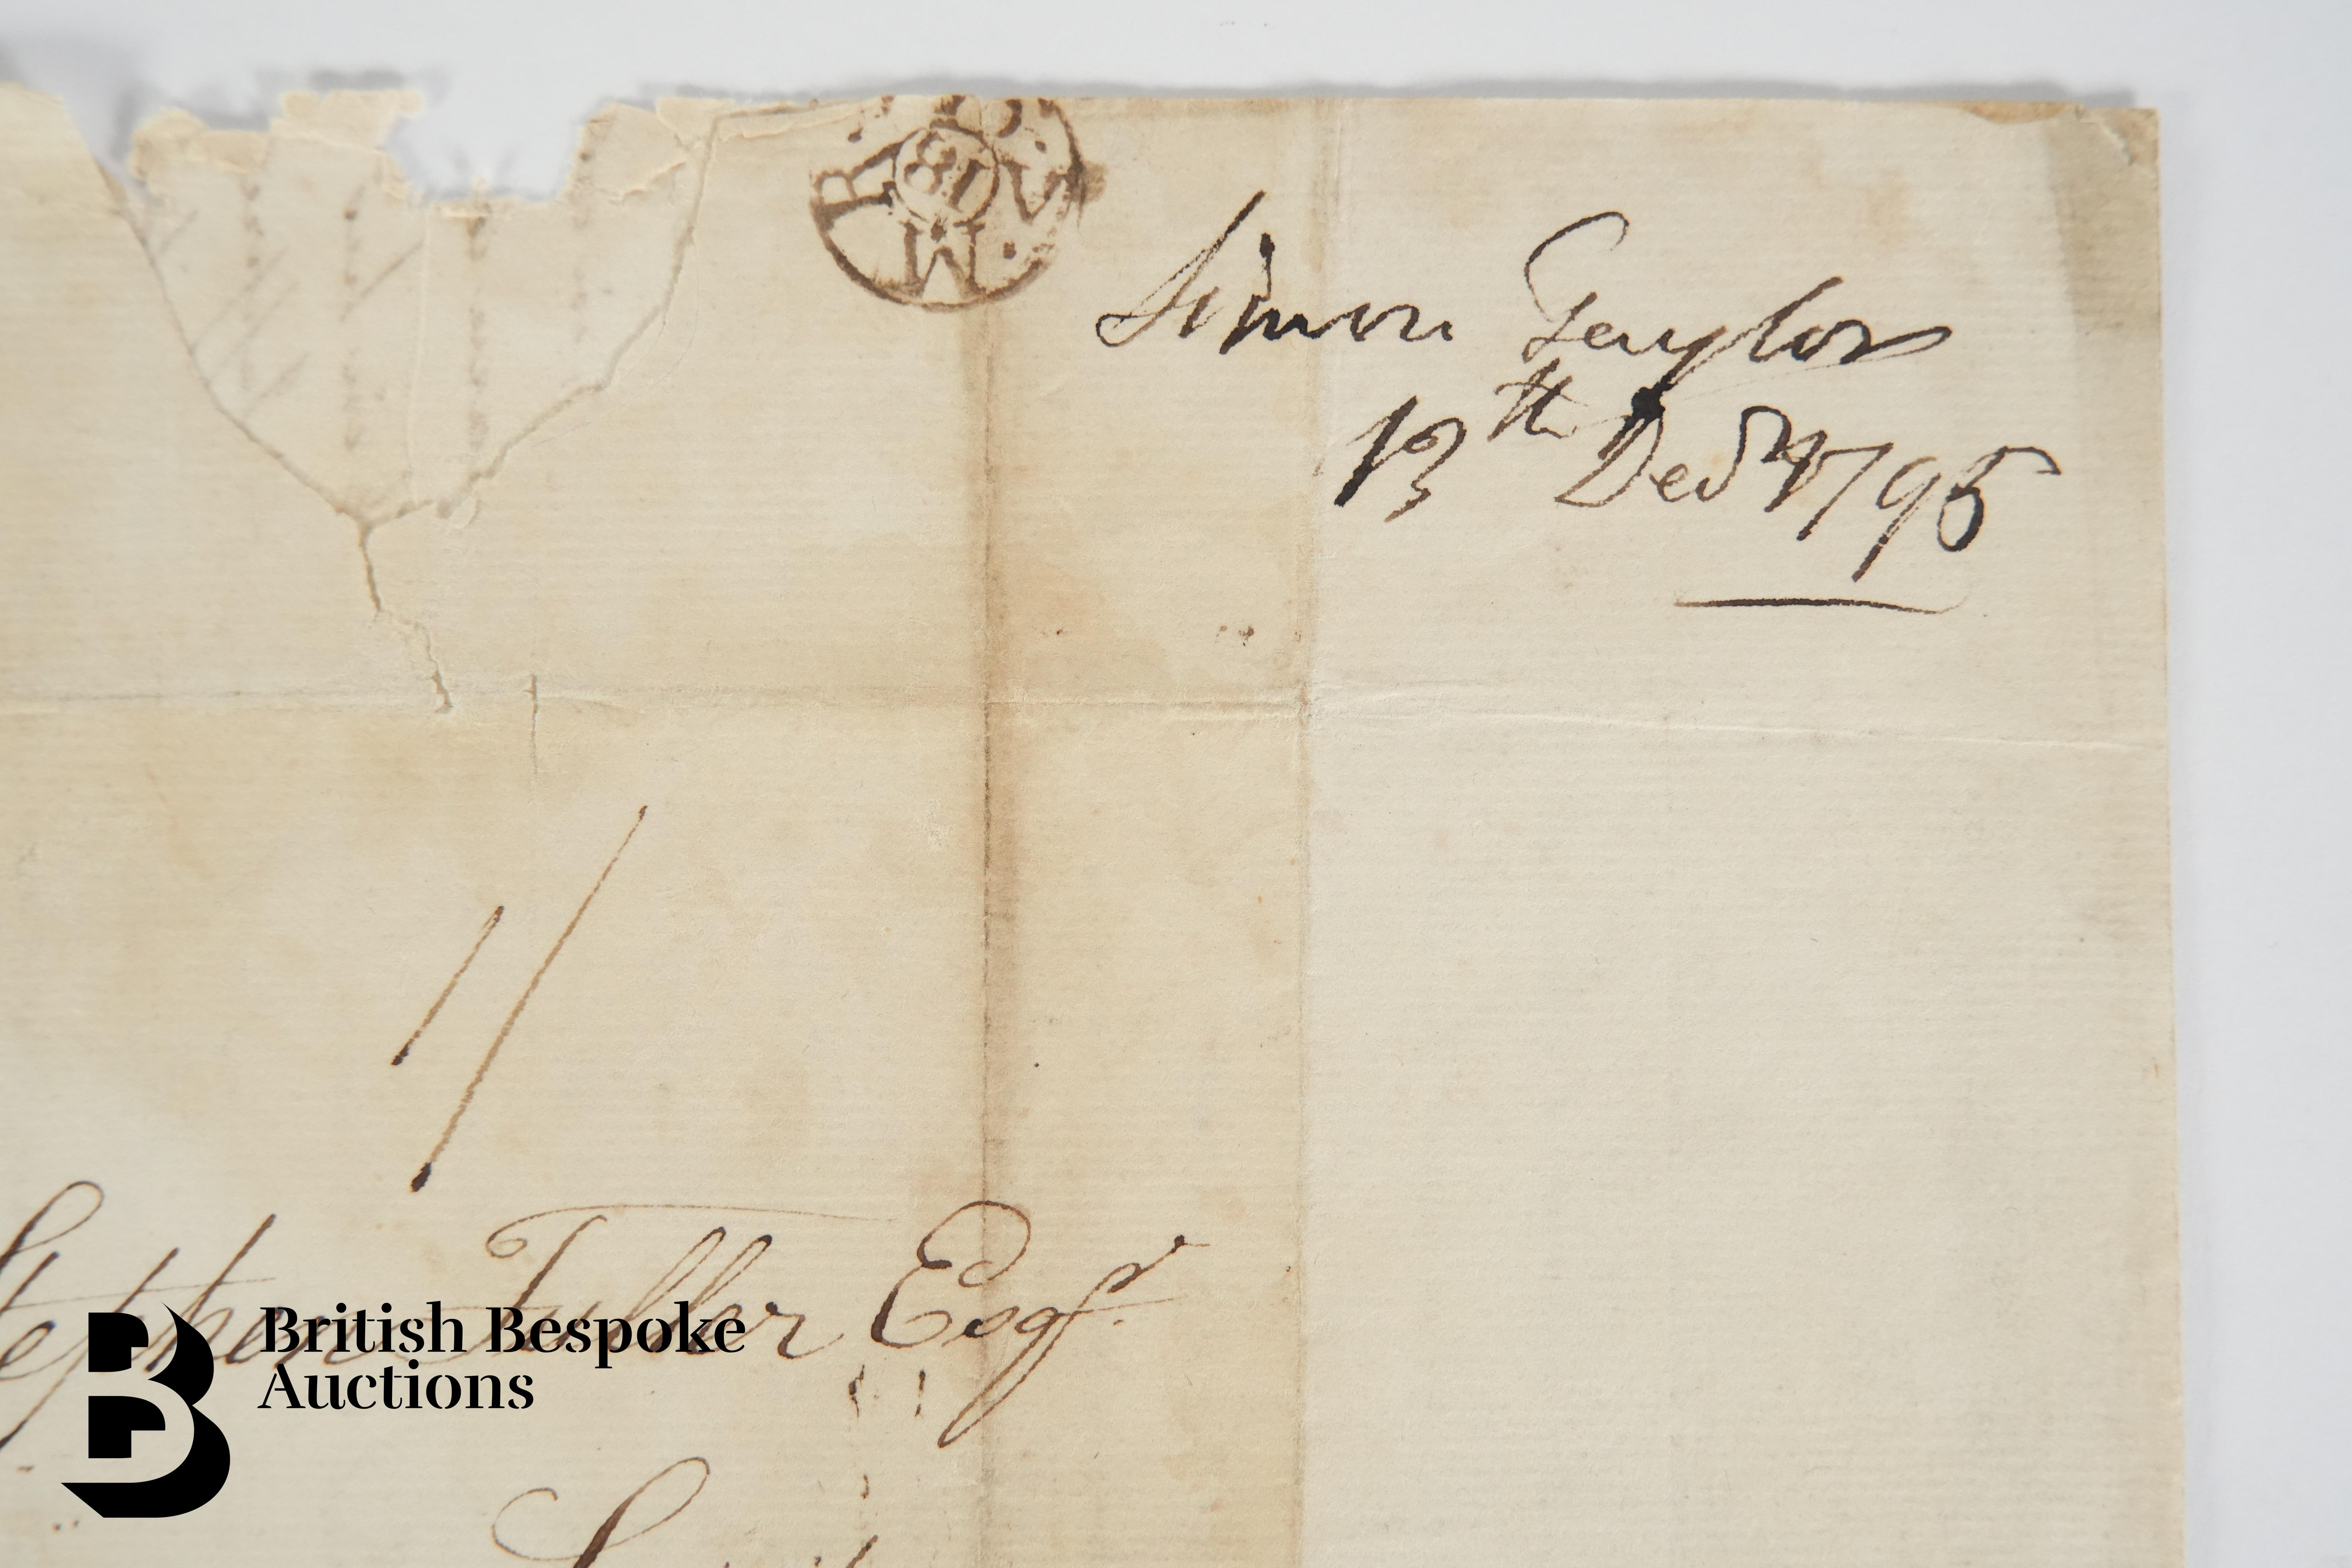 18
M
Simon Taylor
13th Decr 1795
Stephen Fuller Esqr.
British Bespoke
Auctions